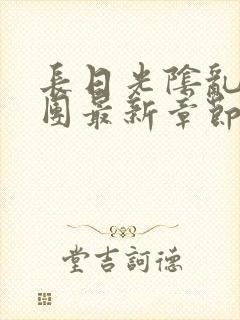 長日光陰亂
團最新章節
堂吉訶德